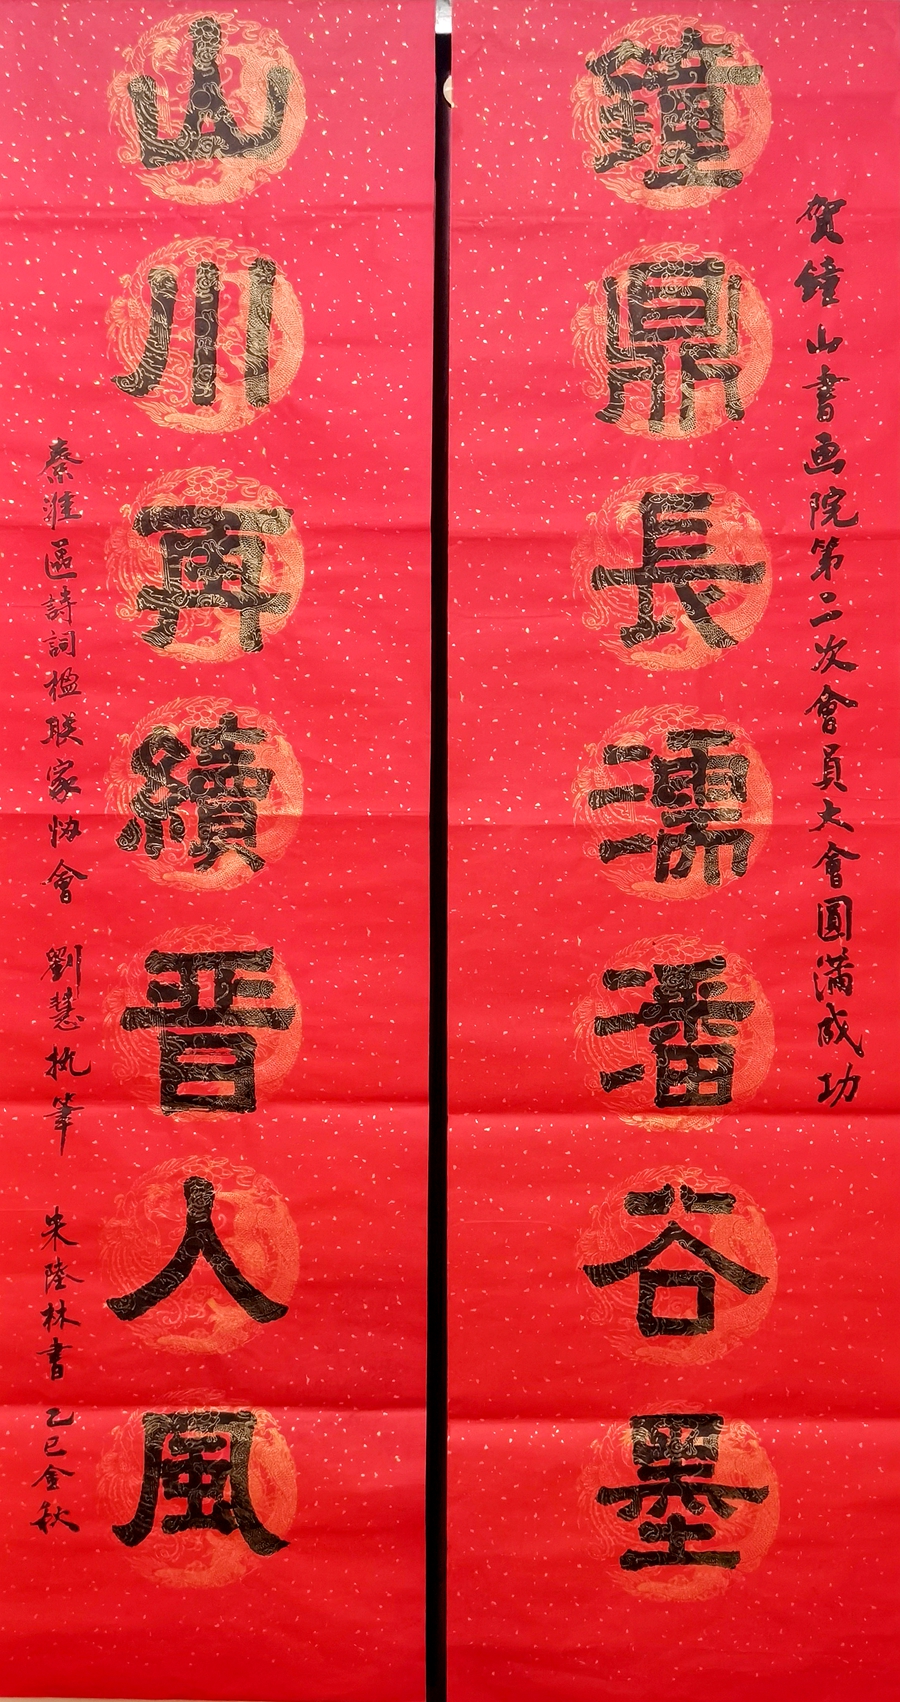 賀鐘山書画院第二次會員大會圓滿成功
鐘鼎長濡潘谷墨
山川再續晋人風
秦淮區詩詞楹联家协會 劉慧执筆 朱陸林書 乙巳金秋